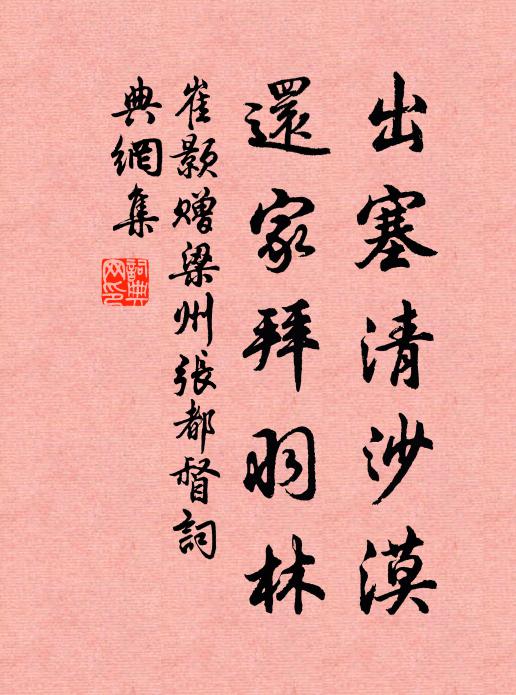 出塞清沙漠
還家拜羽林
崔顥贈梁州張都督詞
典網集
詞典網印